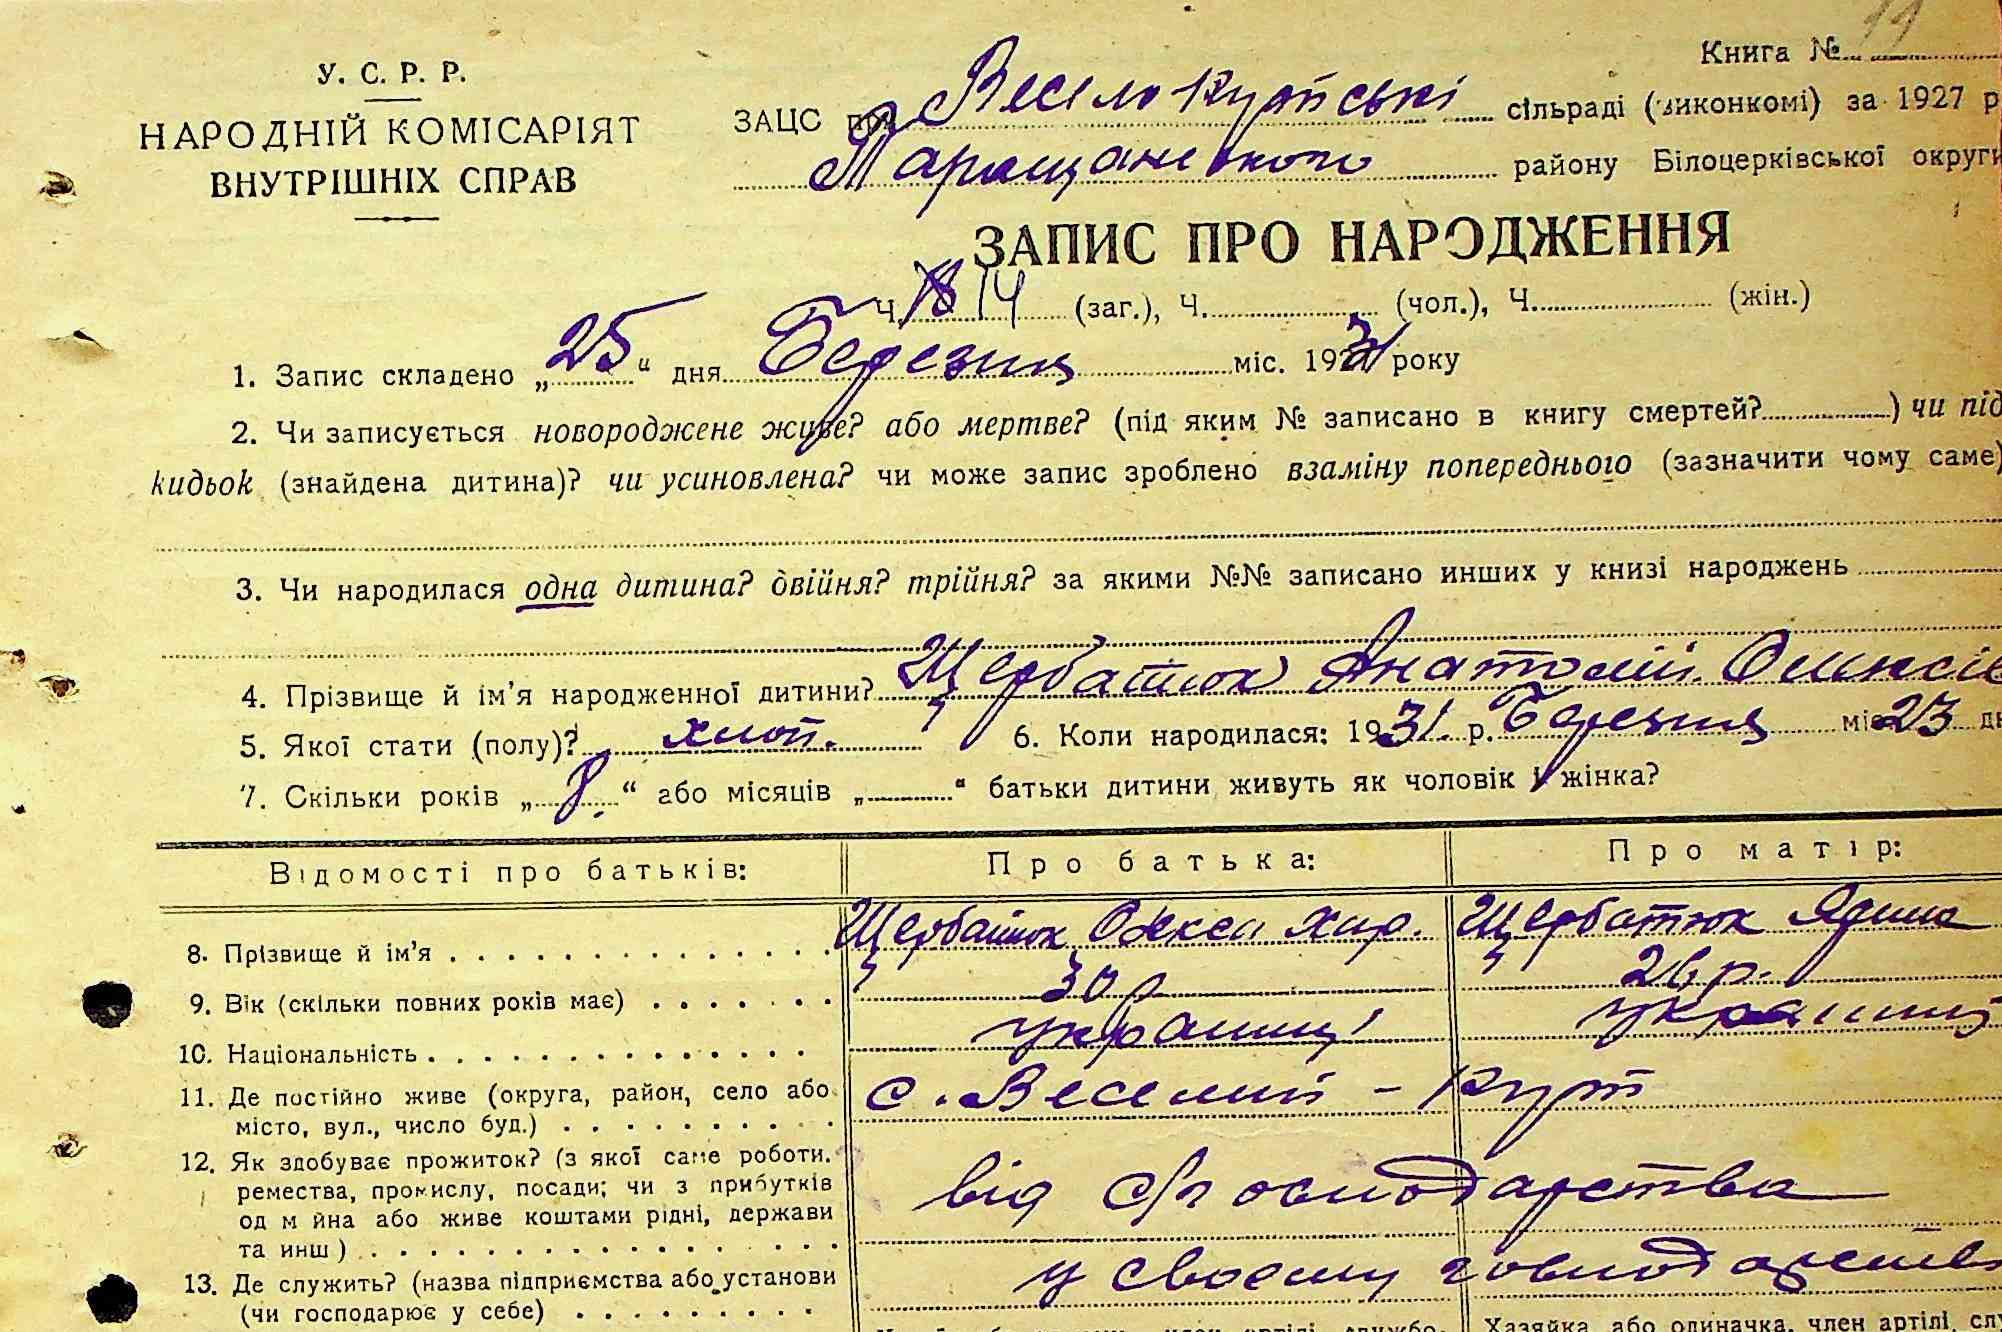 19
У. С. Р. Р.
НАРОДНІЙ КОМІСАРІЯТ
ВНУТРІШНІХ СПРАВ
Книга №
ЗАЦС при Веселокутській сільраді (виконкомі) за 1927 р
Таращанского району Білоцерківської округи
ЗАПИС ПРО НАРОДЖЕННЯ
Ч. 14 (заг.), Ч. (чол.), Ч. (жін.)
1. Запис складено „25“ дня Березня міс. 1931 року
2. Чи записується новороджене живе? або мертве? (під яким № записано в книгу смертей? ) чи під
кидьок (знайдена дитина)? чи усиновлена? чи може запис зроблено взаміну попереднього (зазначити чому саме)
3. Чи народилася одна дитина? двійня? трійня? за якими №№ записано инших у книзі народжень
4. Прізвище й ім'я народженної дитини? Щербатюк Анатолій Олексів
5. Якої стати (полу)? хлоп. 6. Коли народилася: 1931. р. Березня міс 23 дн
7. Скільки років „8.“ або місяців „ “ батьки дитини живуть як чоловік і жінка?
Відомості про батьків: Про батька: Про матір:
8. Прізвище й ім'я Щербатюк Олекса Хар. Щербатюк Ярина
9. Вік (скільки повних років має) 30 р 26 р.
10. Національність україн україн
11. Де постійно живе (округа, район, село або с. Веселий - Кут
місто, вул., число буд.)
12. Як здобуває прожиток? (з якої саме роботи.
ремества, промислу, посади; чи з прибутків від с/господарства
од м йна або живе коштами рідні, держави
та инш)
13. Де служить? (назва підприємства або установи у своєму господарстві
(чи господарює у себе)
Хазяйка або одиначка, член артілі, слу